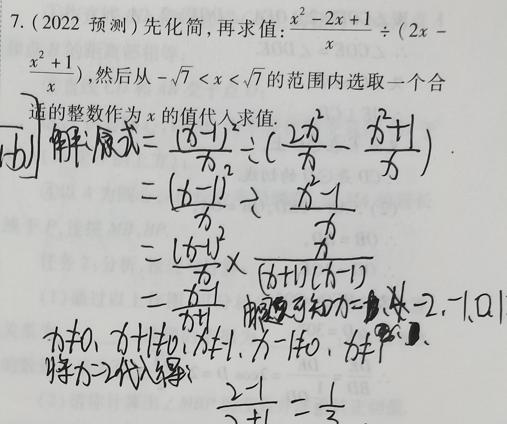 7.(2022 预测)先化简,再求值: (x²-2x+1)/x ÷(2x-
(x²+1)/x),然后从-√7<x<√7的范围内选取一个合
适的整数作为x的值代入求值.
解:原式=(x-1)²/x÷(2x²/x-(x²+1)/x)
=(x-1)²/x÷(x²-1)/x
=(x-1)²/x×x/((x+1)(x-1))
=(x-1)/(x+1) 可知x= -2,-1,0,1
x≠0, x+1≠0, x≠-1, x-1≠0, x≠1
将x=2代入得:
(2-1)/(2+1)=1/3